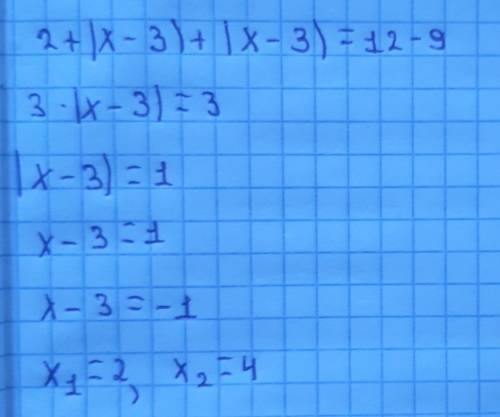 2+|x-3|+|x-3|=12-9
3·|x-3|=3
|x-3|=1
x-3=1
x-3=-1
x₁=2, x₂=4